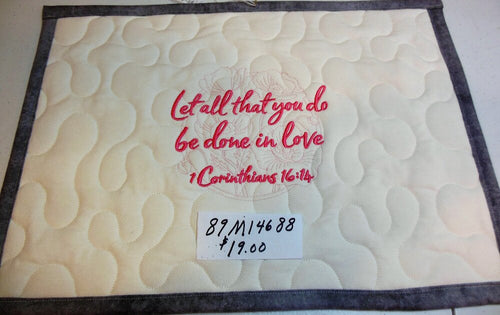 Let all that you do
be done in love
1 Corinthians 16:14
89M14688
$19.00